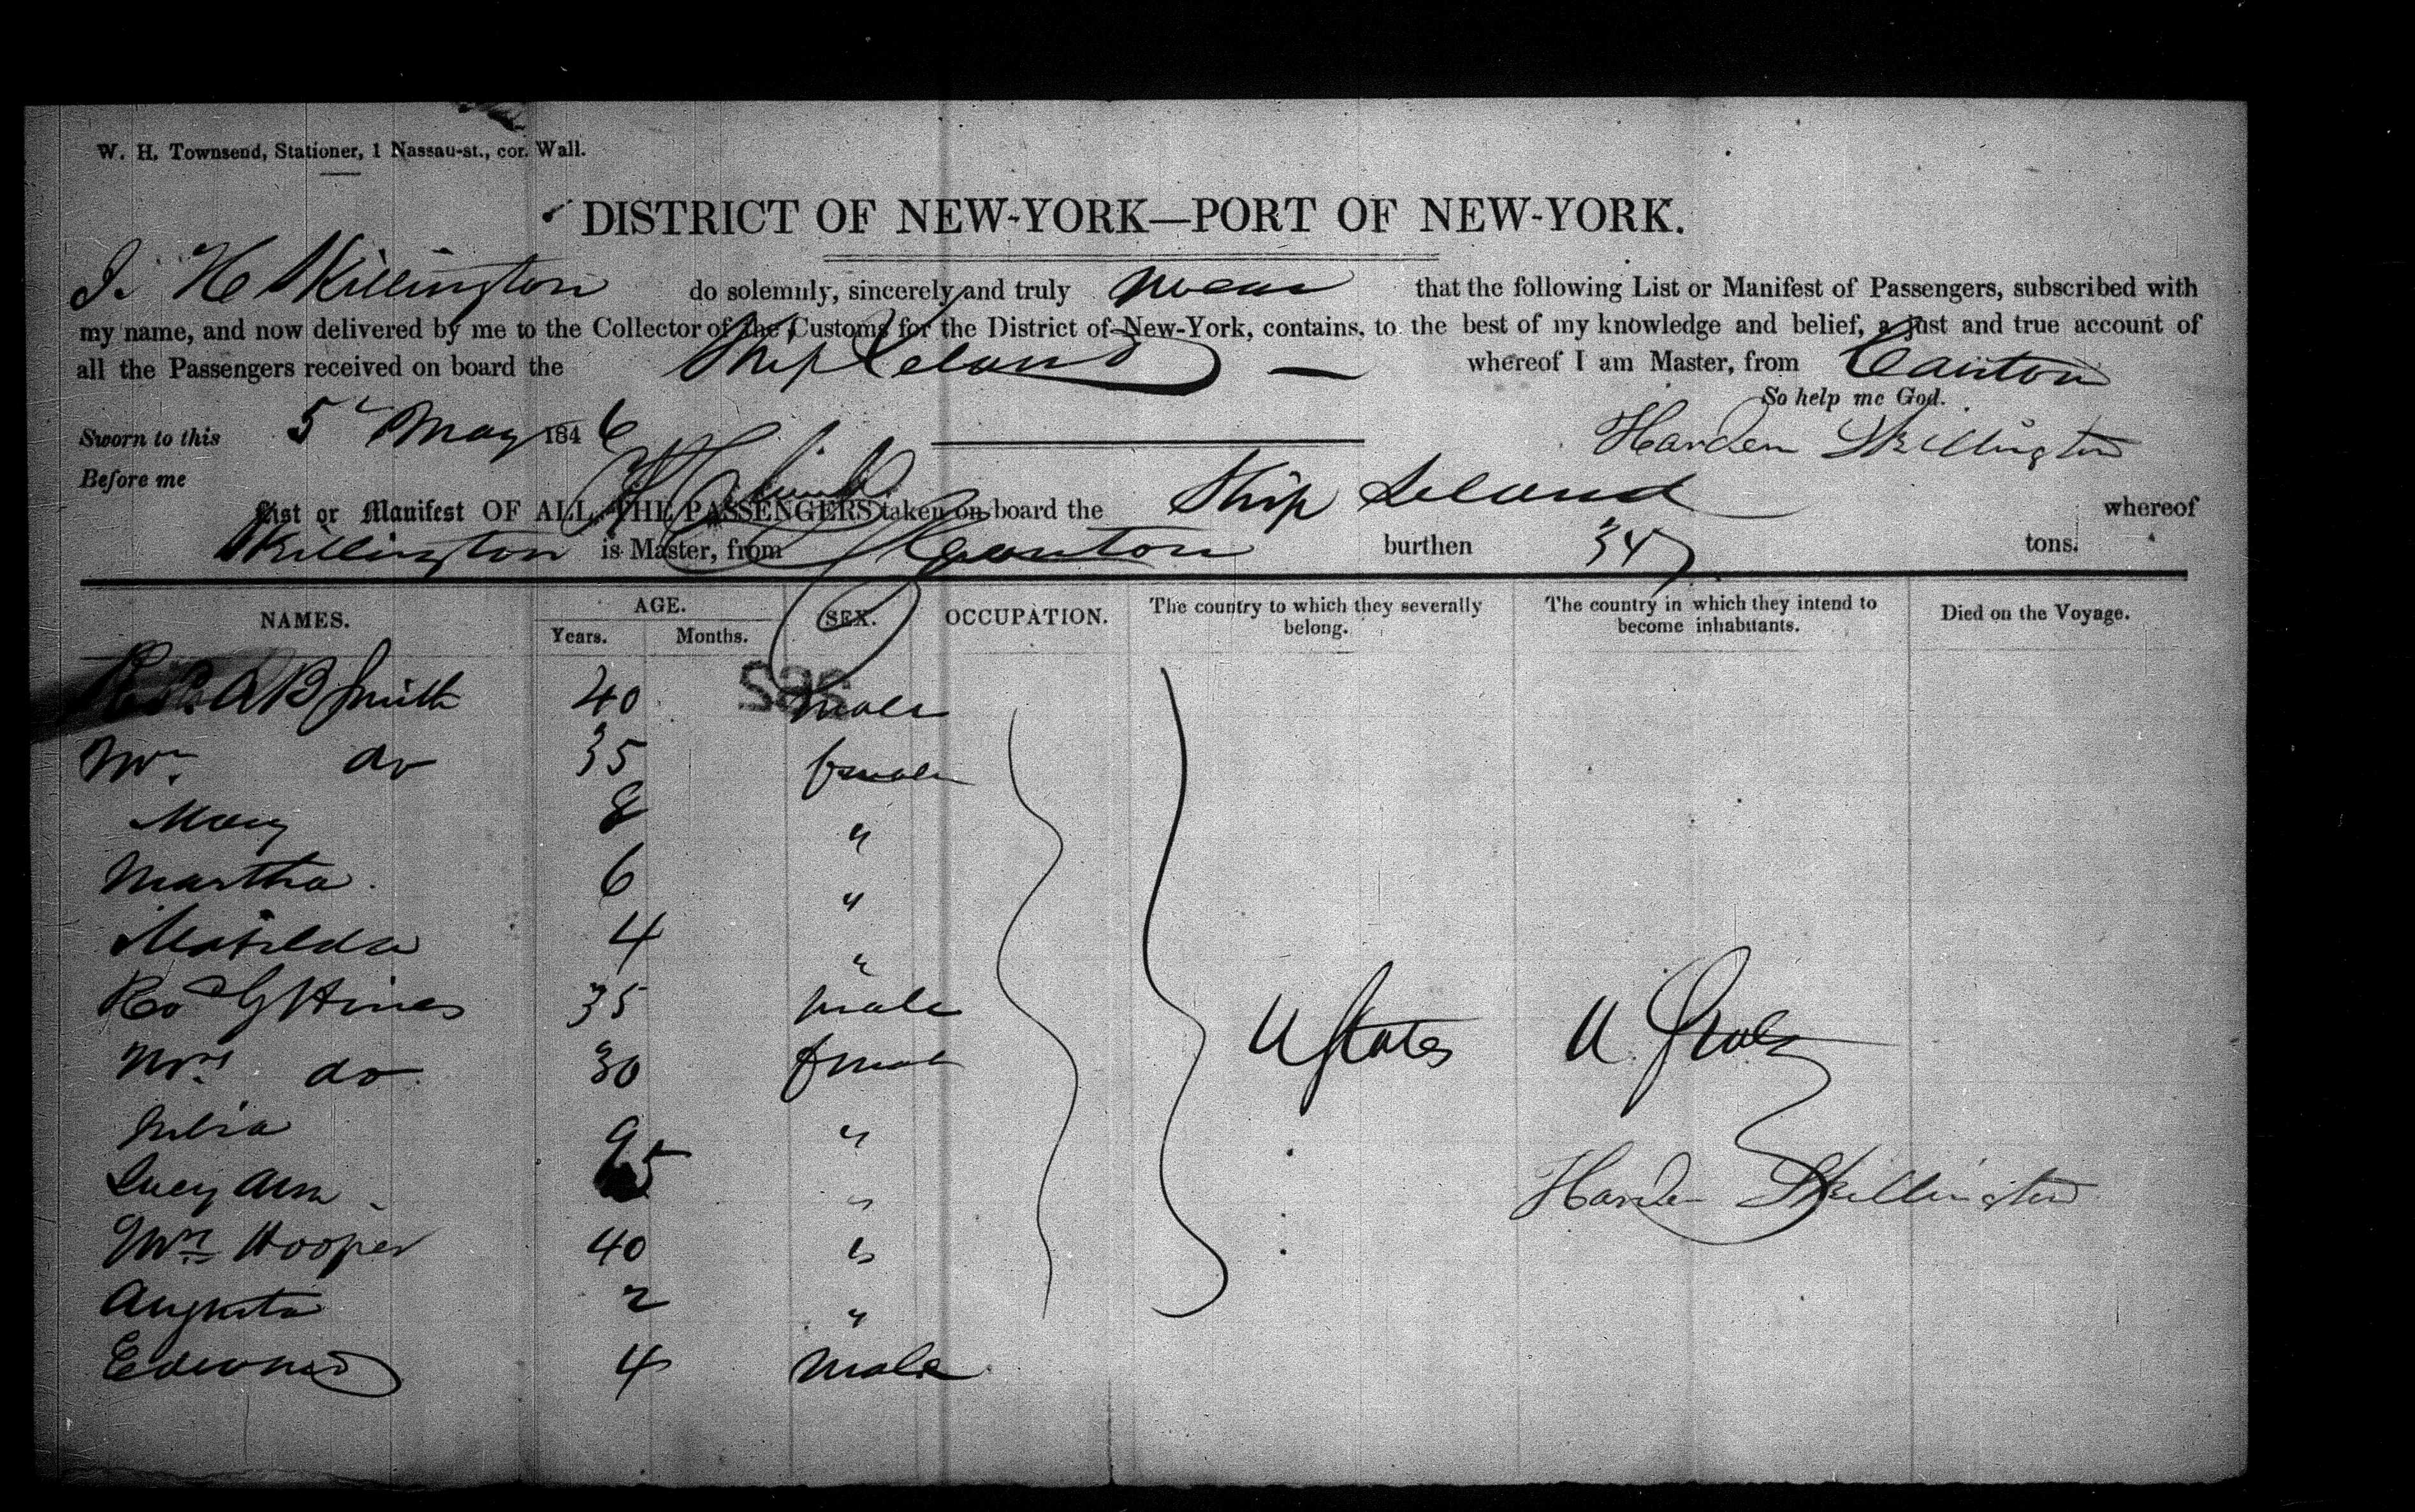 W. H. Townsend, Stationer, 1 Nassau-st., cor. Wall.
DISTRICT OF NEW-YORK—PORT OF NEW-YORK.
I. H Skillington do solemnly, sincerely and truly swear that the following List or Manifest of Passengers, subscribed with
my name, and now delivered by me to the Collector of the Customs for the District of New-York, contains, to the best of my knowledge and belief, a just and true account of
all the Passengers received on board the Ship Leland whereof I am Master, from Canton
So help me God.
Sworn to this 5 May 1846
Harden Skillington
Before me
List or Manifest OF ALL THE PASSENGERS taken on board the Ship Leland whereof
Skillington is Master, from Canton burthen 347 tons.
NAMES. AGE. Years. Months. SEX. OCCUPATION. The country to which they severally belong. The country in which they intend to become inhabitants. Died on the Voyage.
A B Smith 40 male
Mrs do 35 female
Mary 8 "
Martha 6 "
Matilda 4 "
Revd G Hines 35 male
Mrs do 30 female
U States U. States
Julia 9 "
Lucy Ann 5 "
Harden Skillington
Mrs Hooper 40 "
Augusta 2 "
Edward 4 male